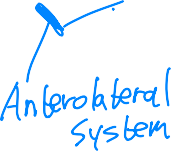 Anterolateral
System